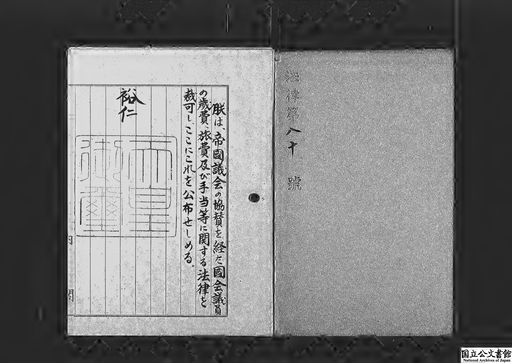 法律第八十號
朕は、帝國議会の協賛を経た國会議員
の歳費、旅費及び手当等に関する法律を
裁可し、ここにこれを公布せしめる。
裕仁
天皇
御璽
国立公文書館
National Archives of Japan